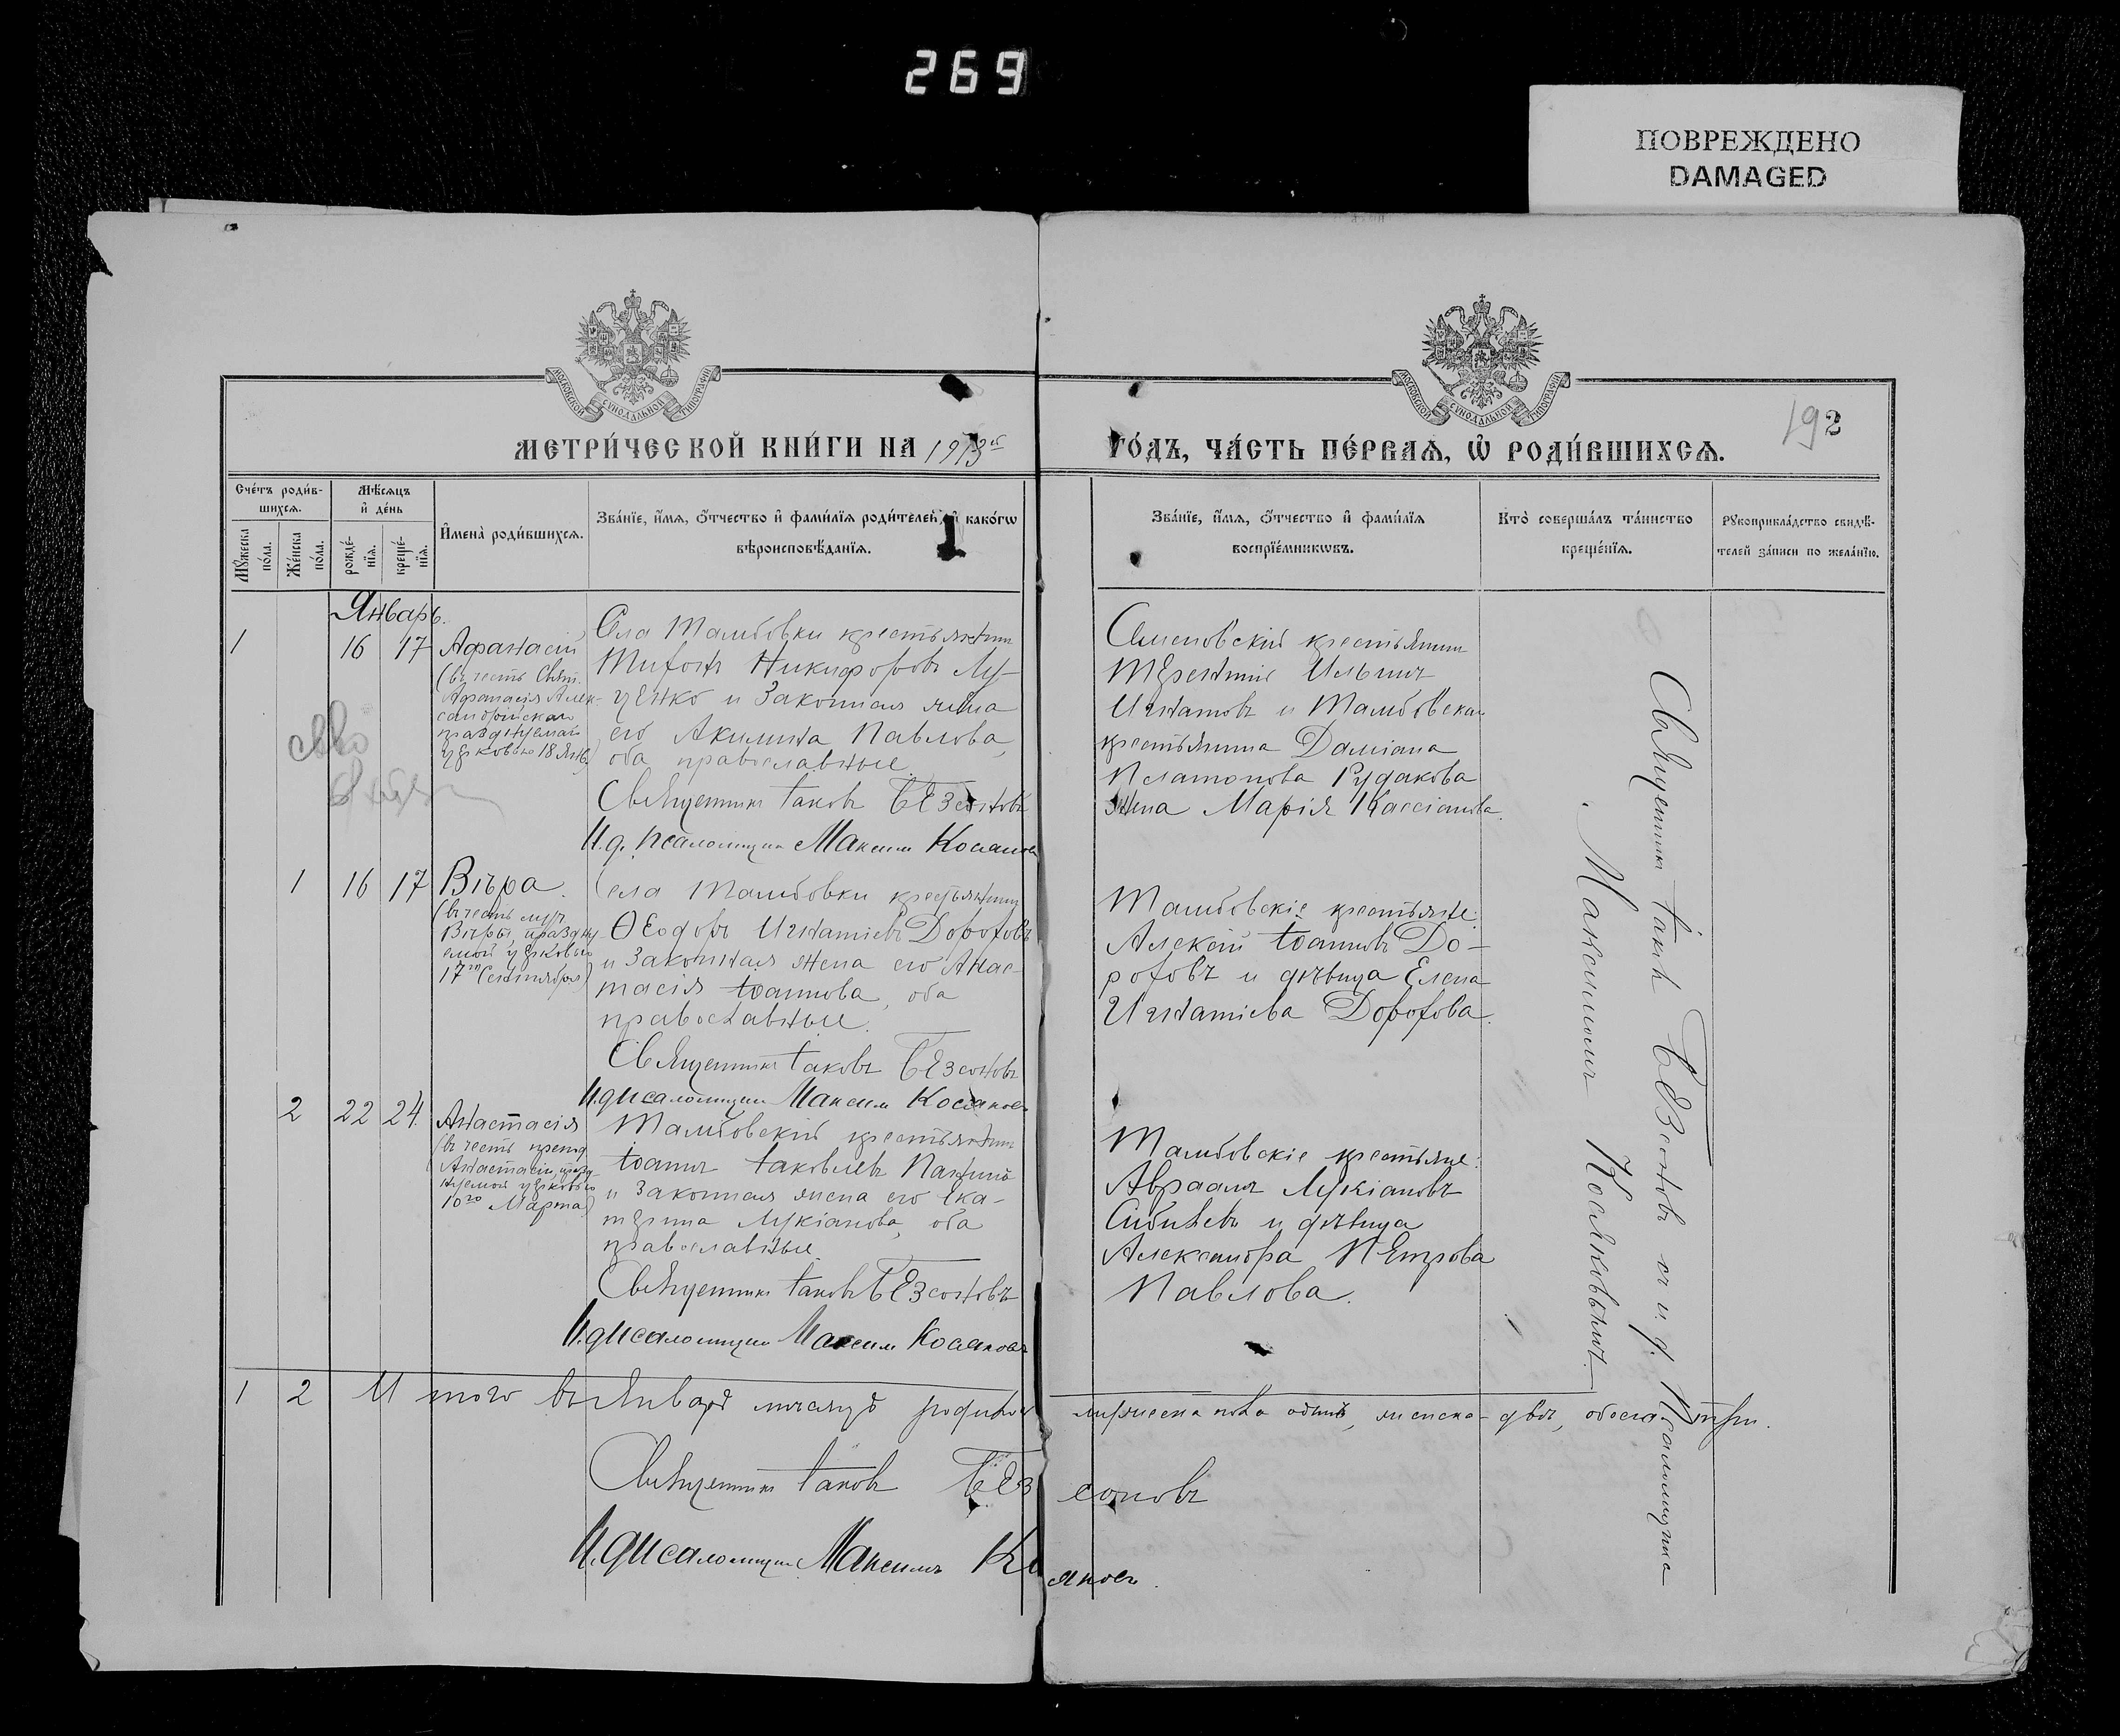 269
ПОВРЕЖДЕНО
DAMAGED
МОСКОВСКОЙ СУНОДАЛЬНОЙ ТИПОГРАФІИ
МОСКОВСКОЙ СУНОДАЛЬНОЙ ТИПОГРАФІИ
192
МЕТРИ́ЧЕСКОЙ КНИ́ГИ НА 1913й
ГО́ДЪ, ЧА́СТЬ ПЕ́РВАѦ, Ѡ҆ РОДИ́ВШИХСѦ.
Сче́тъ роди́в-
шихсѧ.
Мꙋ́жеска по́ла.
Же́нска по́ла.
Мѣ́сѧцъ
и҆ де́нь
рожде́-нїѧ.
креще́-нїѧ.
И҆мена̀ роди́вшихсѧ.
Зва́нїе, и҆́мѧ, ѻ҆́тчество и҆ фами́лїѧ роди́телей, и҆ како́гѡ
вѣроисповѣ́данїѧ.
Зва́нїе, и҆́мѧ, ѻ҆́тчество и҆ фами́лїѧ
воспрїе́мникѡвъ.
Кто̀ соверша́лъ та́инство
креще́нїѧ.
Рꙋкоприкла́дство свидѣ́-
телей за́писи по жела́нїю.
Январь.
1 16 17 Афанасій
(въ честь Свят.
Афанасія Алек-
сандрійскаго
празднуемаго
церковью 18 Янв.)
Села Тамбовки крестьянинъ
Тихонъ Никифоровъ Лу-
ценко и законная жена
его Акилина Павлова,
оба православные.
Священникъ Іаковъ Безсоновъ
И.д. псаломщика Максимъ Косяковъ
крестьянинъ
Терентій Ильинъ
Игнатовъ и Тамбовская
крестьянина Даміана
Платонова Рудакова
жена Марія Кассіанова.
1 16 17 Вѣра.
(въ честь муч.
Вѣры, праздну-
емой церковью
17го Сентября)
Села Тамбовки крестьянинъ
Ѳеодоръ Игнатіевъ Дороховъ
и законная жена его Анас-
тасія Іоаннова, оба
православные.
Священникъ Іаковъ Безсоновъ
И.д. псаломщика Максимъ Косяковъ
Тамбовскіе крестьяне:
Алексій Іоанновъ До-
роховъ и дѣвица Елена
Игнатіева Дорохова.
2 22 24 Анастасія
(въ честь препод.
Анастасіи, празд-
нуемой церковью
10го Марта)
Тамбовскій крестьянинъ
Іоаннъ Іаковлевъ Панинъ
и законная жена его Ека-
терина Лукіанова, оба
православные.
Священникъ Іаковъ Безсоновъ
И.д. псаломщика Максимъ Косяковъ
Тамбовскіе крестьяне:
Авраамъ Лукіановъ
и дѣвица
Александра Петрова
Павлова.
Священникъ Іаковъ Безсоновъ съ и.д. псаломщика
Максимомъ Косяковымъ.
1 2 Итого въ Январѣ мѣсяцѣ родилось мужеска пола одинъ, женска - двѣ, обоего - три.
Священникъ Іаковъ Безсоновъ
И.д. псаломщика Максимъ Косяковъ.